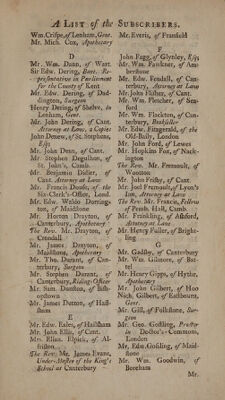 A LIST of the SUBSCRIBERS.
Wm. Crispe, of Lenham, Gent.
Mr. Mich. Cox, Apothecary
D
Mr. Wm. Dann, of Wart.
Sir Edw. Dering, Baronet. Re-
presentative in Parliament
for the County of Kent
Mr. Edw. Dering, of Dud-
dington, Surgeon
Henry Dering, of Shelve, in
Lenham, Gent.
Mr. John Dering, of Cant.
Attorney at Law, 2 Copies
John Denew, of St. Stephens,
Esq;
Mr. John Dean, of Cant.
Mr. Stephen Degulhon, of
St. John's, Camb.
Mr. Benjamin Didier, of
Cant. Attorney at Law
Mr. Francis Douse, of the
Six-Clerk's-Office, Lond.
Mr. Edw. Waldo Dorring-
ton, of Maidstone
Mr. Horton Drayton, of
Canterbury, Apothecary
The Rev. Mr. Drayton, of
Crondall
Mr. James Drayton, of
Maidstone, Apothecary
Mr. Tho. Durant, of Can-
terbury, Surgeon
Mr. Stephen Durant, of
Canterbury, Riding Officer
Mr. Sam. Dunston, of Bish-
opstown
Mr. James Dutton, of Hail-
sham
E
Mr. Edw. Eales, of Hailsham
Mr. John Ellis, of Cant.
Mrs. Eliza. Elpick, of Al-
friston
The Rev. Mr. James Evans,
Under-Master of the King's
School at Canterbury
Mr. Everis, of Framfield
F
John Fagg, of Glynley, Esq;
Mr. Wm. Faulkner, of Am-
berstone
Mr. Edw. Fendall, of Can-
terbury, Attorney at Law
Mr. John Fisher, of Cant.
Mr. Wm. Fletcher, of Sea-
ford
Mr. Wm. Flackton, of Can-
terbury, Bookseller
Mr. Edw. Fitzgerald, of the
Old-Baily, London
Mr. John Ford, of Lewes
Mr. Hopkins Fox, of Nack-
ington
The Rev. Mr. Fremoult, of
Wootton
Mr. John Frisby, of Cant.
Mr. Joel Fremoult, of Lyon's
Inn, Attorney at Law
The Rev. Mr. Francis, Fellow
of Pemb. Hall, Camb.
Mr. Frankling, of Ashford,
Attorney at Law
Mr. Henry Fuller, of Bright-
ling
G
Mr. Gadsby, of Canterbury
Mr. Wm. Gilmore, of Bat-
tel
Mr. Henry Gipps, of Hythe,
Apothecary
Mr. John Gilbert, of Hoo
Nich. Gilbert, of Eastbourn,
Gent.
Mr. Gill, of Folkstone, Sur-
geon
Mr. Geo. Gostling, Proctor
in Doctor's-Commons,
London
Mr. Edw. Gosling, of Maid-
stone
Mr. Wm. Goodwin, of
Boreham
Mr.